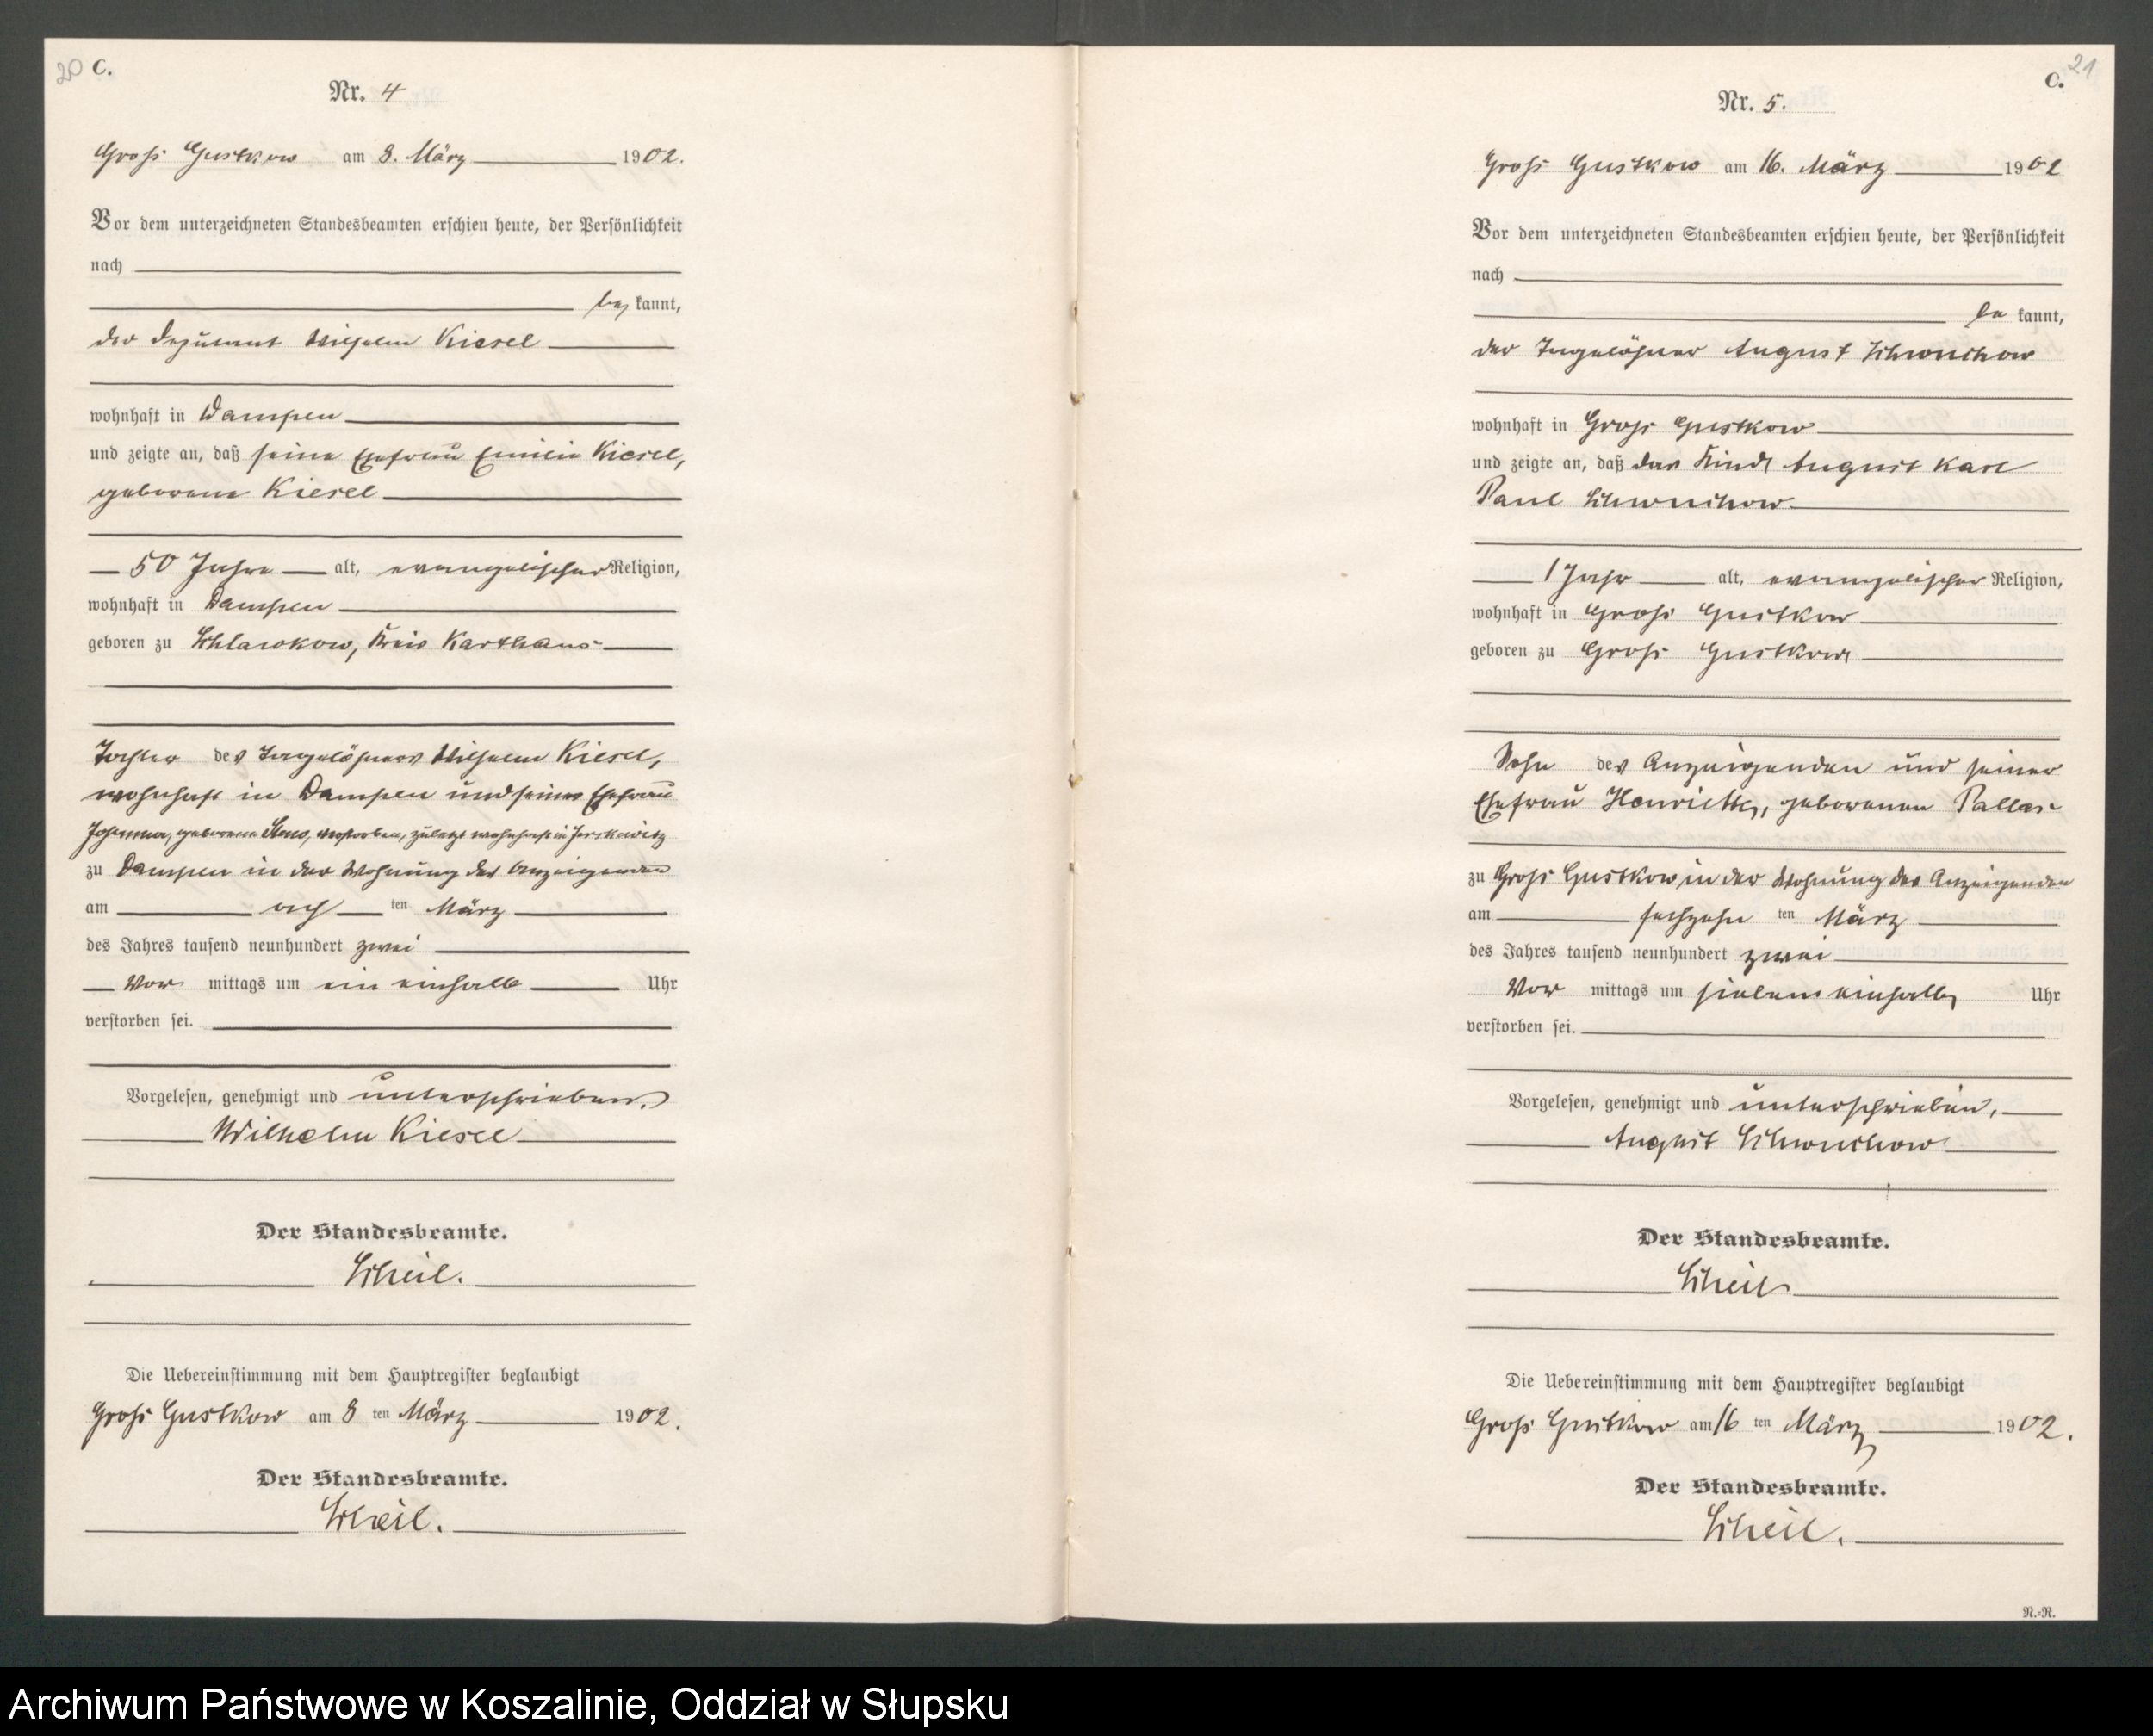 20 C.
Nr. 4
Groß Gustkow am 8. März 1902.
Vor dem unterzeichneten Standesbeamten erschien heute, der Persönlichkeit
nach
be kannt,
der Deputant Wilhelm Kiesel
wohnhaft in Dampen
und zeigte an, daß seine Ehefrau Emilie Kiesel,
geborene Kiesel
50 Jahre alt, evangelischer Religion,
wohnhaft in Dampen
geboren zu Kreis Karthaus
Tochter des Tagelöhners Wilhelm Kiesel,
wohnhaft in Dampen und seiner Ehefrau
Johanna, geborene verstorben, zuletzt wohnhaft in Jerskewitz
zu Dampen in der Wohnung des Anzeigenden
am acht ten März
des Jahres tausend neunhundert zwei
Vor mittags um ein einhalb Uhr
verstorben sei.
Vorgelesen, genehmigt und unterschrieben.
Wilhelm Kiesel
Der Standesbeamte.
Scheil.
Die Uebereinstimmung mit dem Hauptregister beglaubigt
Groß Gustkow am 8 ten März 1902.
Der Standesbeamte.
Scheil.
C. 21
Nr. 5.
Groß Gustkow am 16. März 1902
Vor dem unterzeichneten Standesbeamten erschien heute, der Persönlichkeit
nach
be kannt,
der Tagelöhner August Schwuchow
wohnhaft in Groß Gustkow
und zeigte an, daß das Kind August Karl
Paul Schwuchow
1 Jahr alt, evangelischer Religion,
wohnhaft in Groß Gustkow
geboren zu Groß Gustkow
Sohn des Anzeigenden und seiner
Ehefrau Henriette, geborenen Pallas
zu Groß Gustkow in der Wohnung des Anzeigenden
am sechzehn ten März
des Jahres tausend neunhundert zwei
Vor mittags um sieben einhalb Uhr
verstorben sei.
Vorgelesen, genehmigt und unterschrieben,
August Schwuchow
Der Standesbeamte.
Scheil
Die Uebereinstimmung mit dem Hauptregister beglaubigt
Groß Gustkow am 16 ten März 1902.
Der Standesbeamte.
Scheil.
N.-N.
Archiwum Państwowe w Koszalinie, Oddział w Słupsku